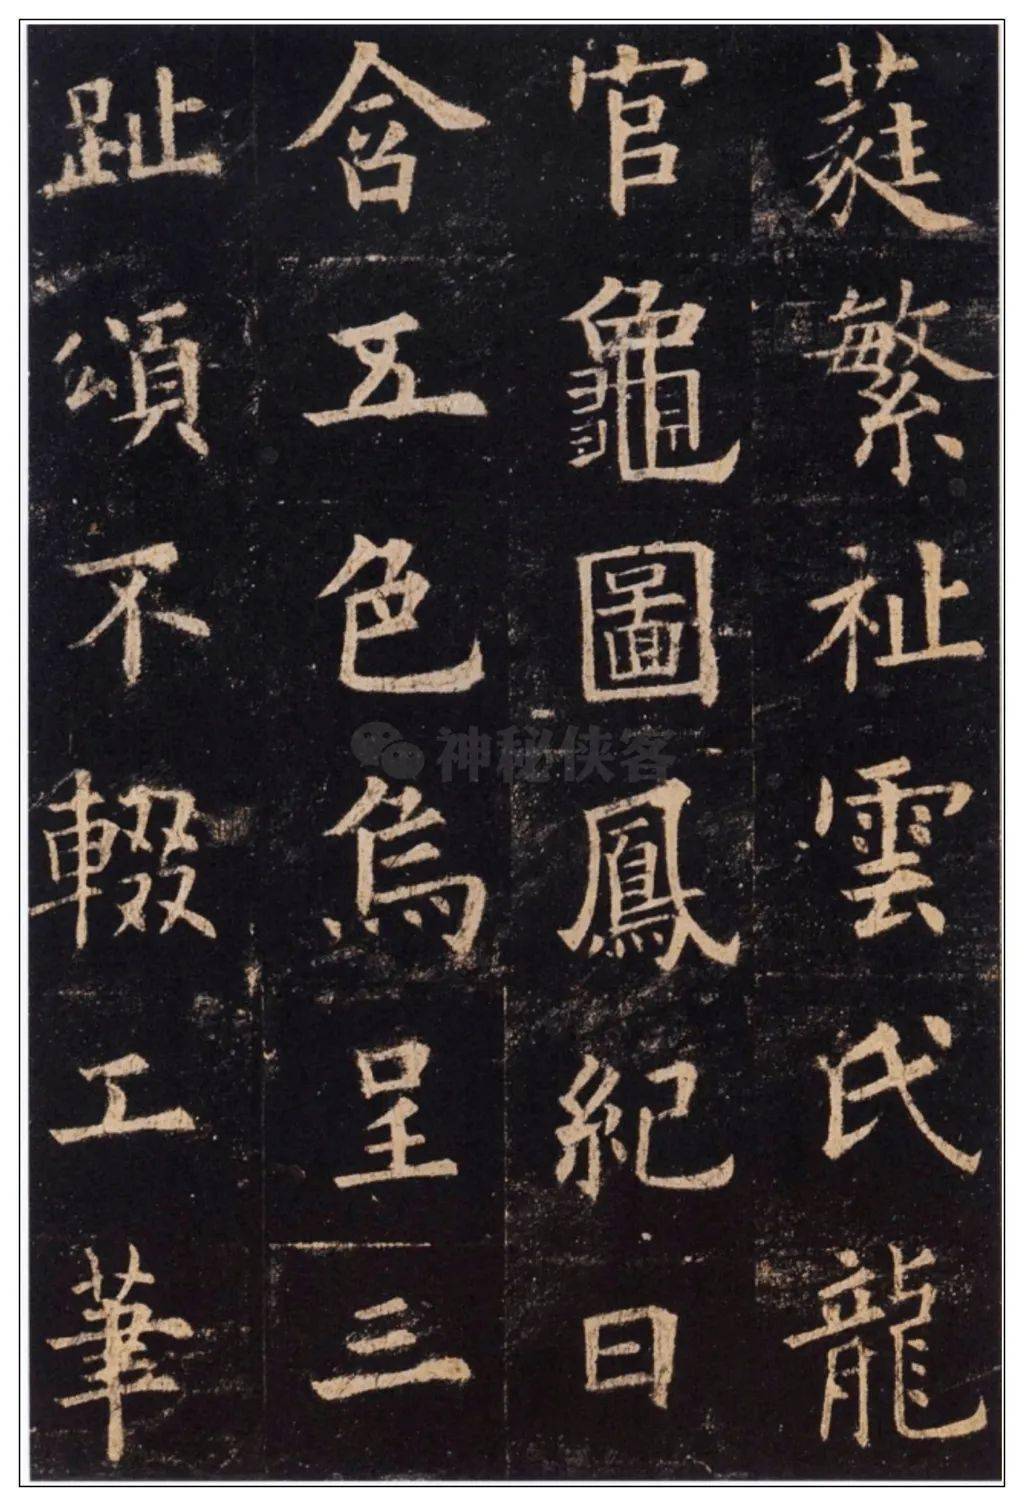 蕤繁祉雲氏龍
官龜圖鳳紀日
含五色烏呈三
趾頌不輟工筆
神秘侠客